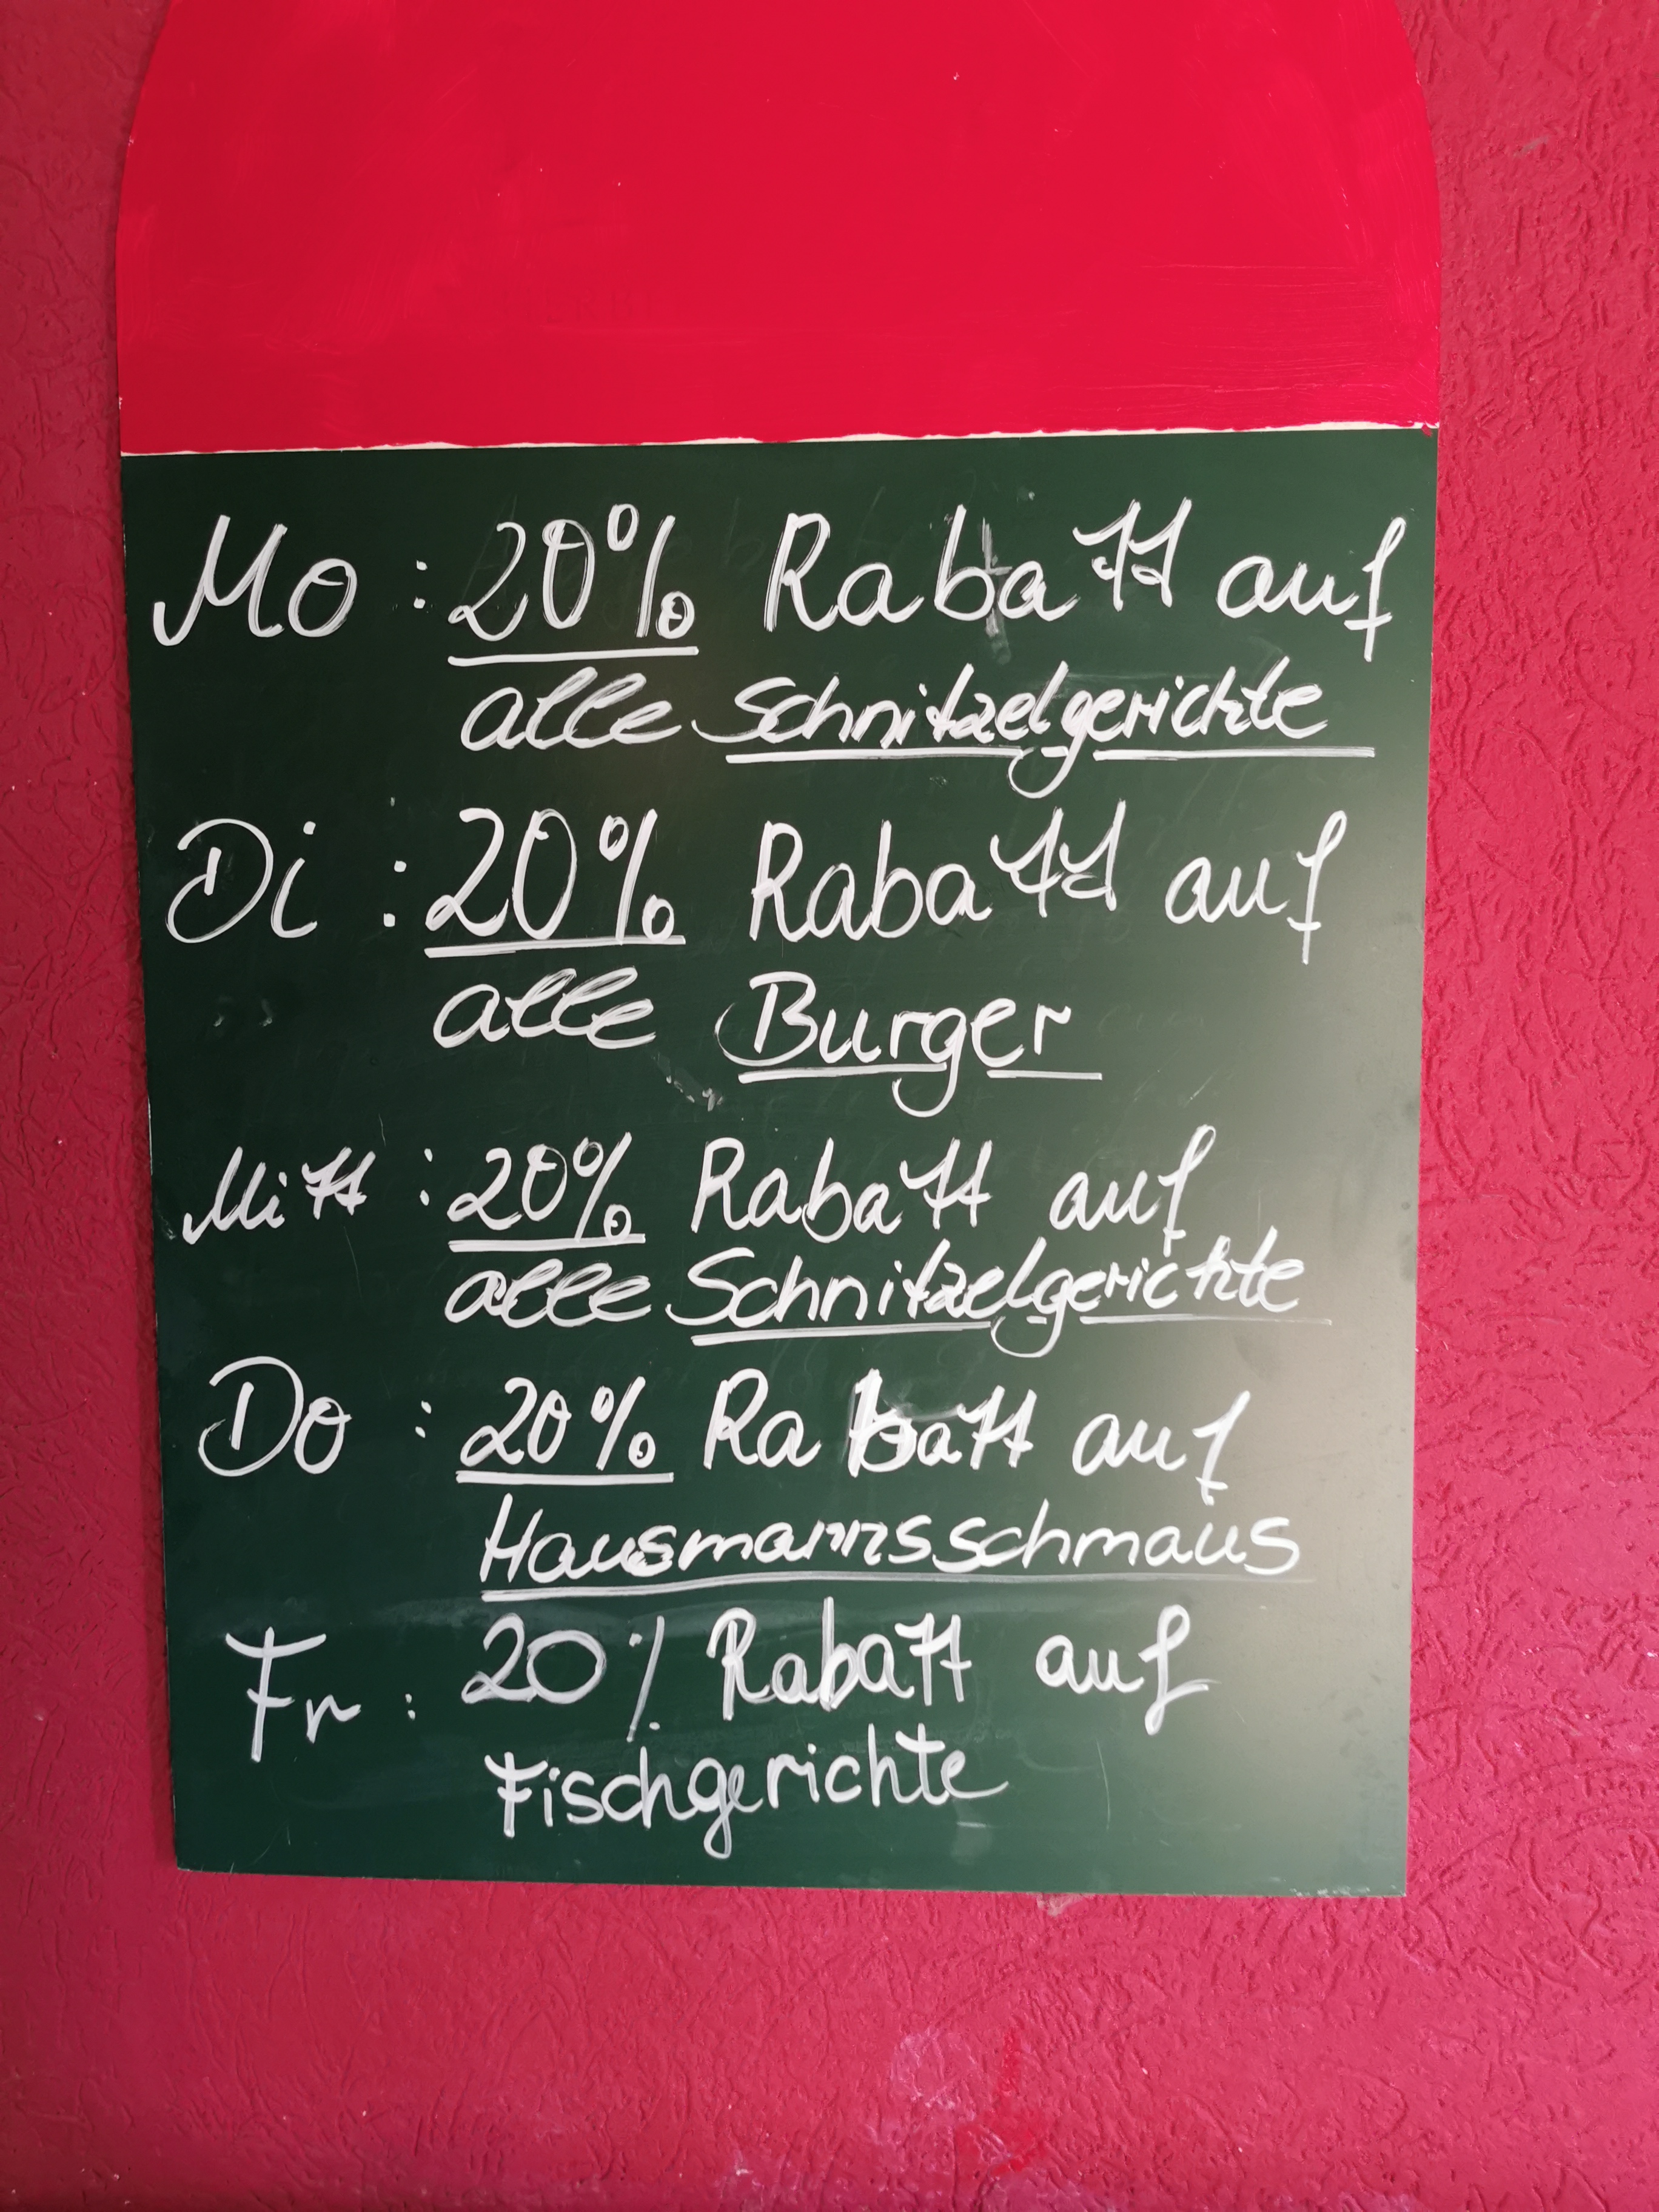 Mo : 20% Rabatt auf
alle Schnitzelgerichte
Di : 20% Rabatt auf
alle Burger
Mitt : 20% Rabatt auf
alle Schnitzelgerichte
Do : 20% Rabatt auf
Hausmannsschmaus
Fr : 20% Rabatt auf
Fischgerichte